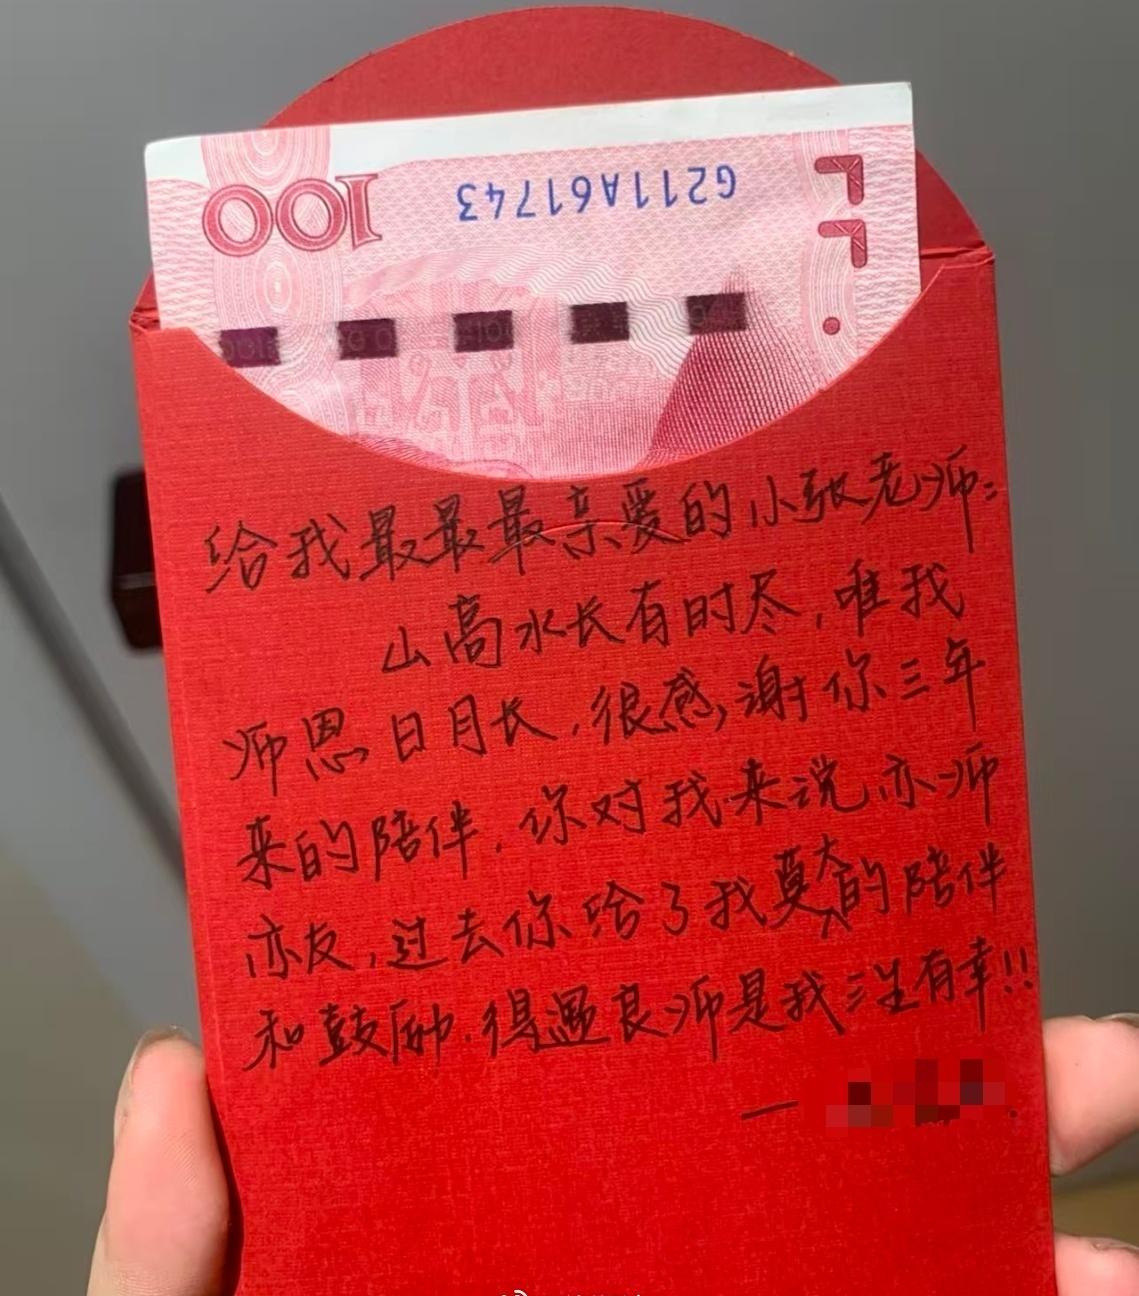 100
G211A61743
给我最最最亲爱的小张老师：
山高水长有时尽，唯我
师恩日月长，很感谢你三年
来的陪伴，你对我来说亦师
亦友，过去你给了我莫大的陪伴
和鼓励，得遇良师是我三生有幸！！